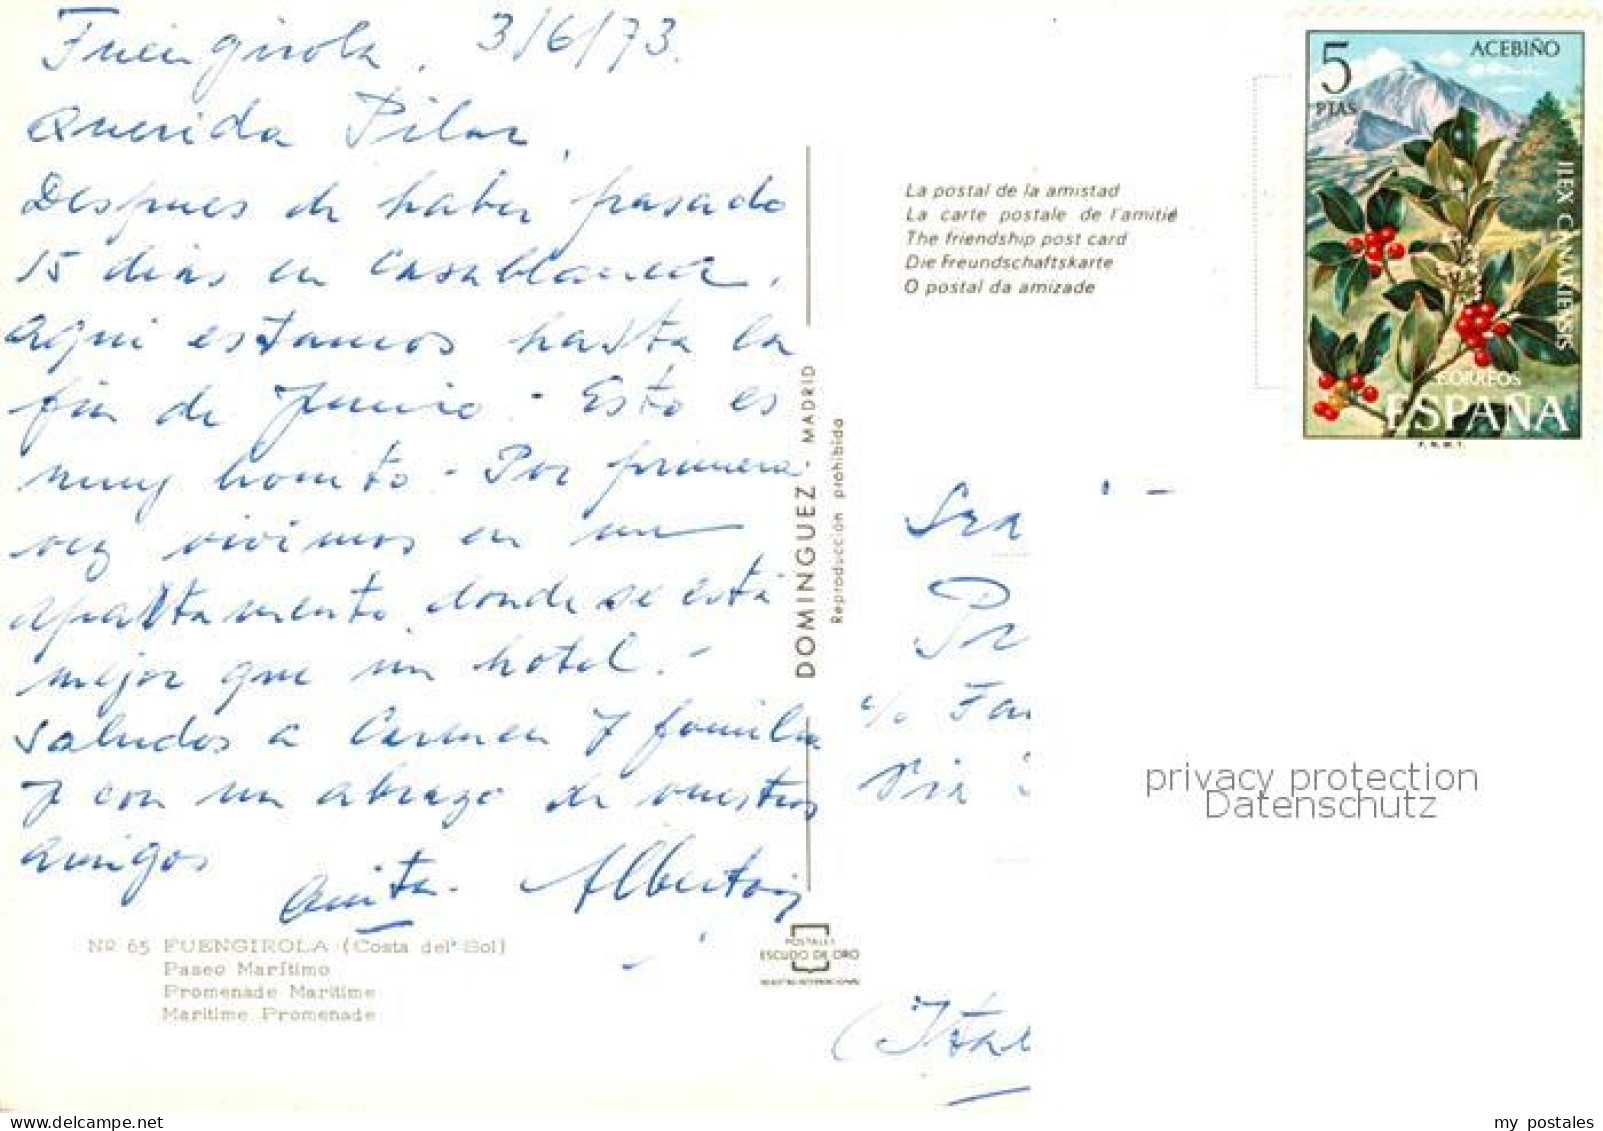 Fuengirola, 3/6/73.
Querida Pilar,
Despues de haber pasado
15 dias en Casablanca,
aqui estamos hasta la
fin de Junio - Esto es
muy bonito - Por primera
vez vivimos en un
apartamento donde se está
mejor que un hotel. -
Saludos a Carmen y familia
y con un abrazo de vuestros
amigos
Anita - Alberto
Nº 65 FUENGIROLA (Costa del Sol)
Paseo Marítimo
Promenade Maritime
Maritime Promenade
DOMINGUEZ - MADRID
Reproducción prohibida
POSTALES
ESCUDO DE ORO
La postal de la amistad
La carte postale de l'amitié
The friendship post card
Die Freundschaftskarte
O postal da amizade
5
PTAS
ACEBIÑO
ILEX CANARIENSIS
CORREOS
ESPAÑA
F.N.M.T.
Sra
Pr
c/o Fam
Via
(Ital
privacy protection
Datenschutz
www.delcampe.net
my postales